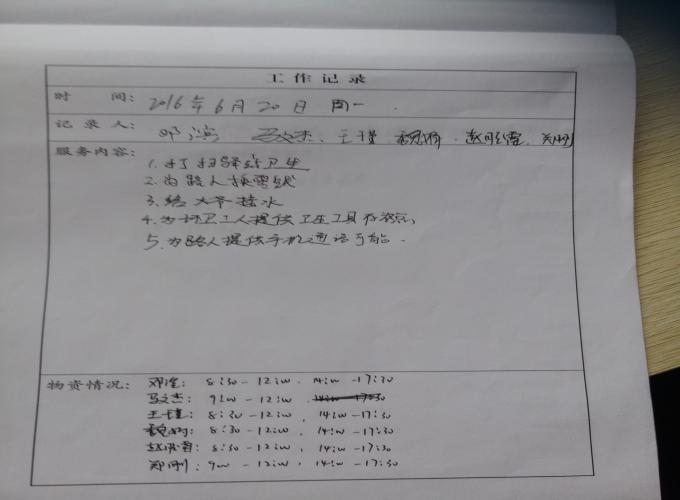 工作记录
时 间: 2016年6月20日 周一.
记录人: 邓滢 马文杰、王瑾
服务内容:
1.打扫驿站卫生
2.为路人换零钱
3.给大爷接水
4.为环卫工人提供卫生工具存放点
5.为路人提供手机通话功能.
物资情况: 邓滢: 8:30-12:00. 14:00-17:30
马文杰: 9:00-12:00. 14:00-17:30
王瑾: 8:30-12:00, 14:00-17:30
8:30-12:00. 14:00-17:30
8:30-12:00, 14:00-17:30
郑刚: 9:00-12:00, 14:00-17:30